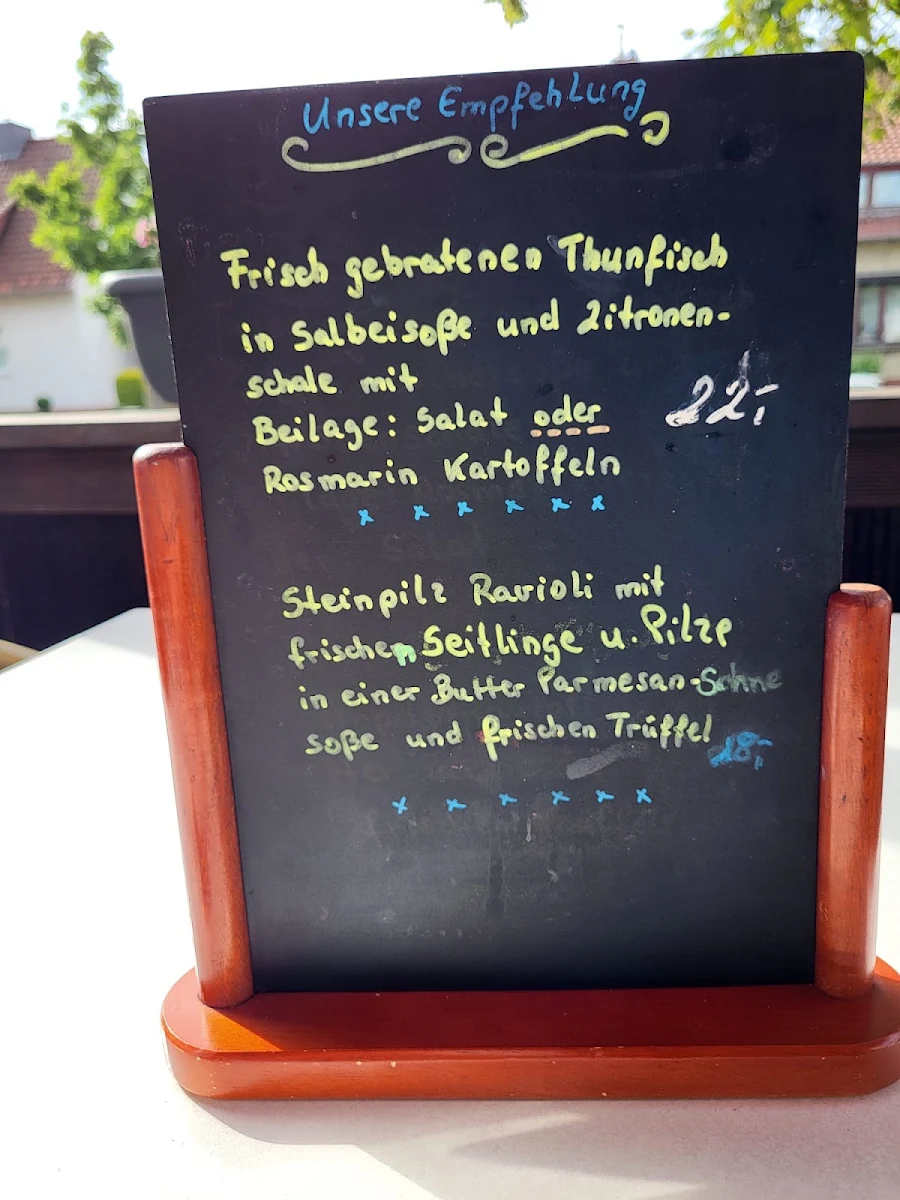 Unsere Empfehlung
Frisch gebratenen Thunfisch
in Salbeisoße und Zitronen-
schale mit
Beilage: Salat oder
22,-
Rosmarin Kartoffeln
x x x x x x
Steinpilz Ravioli mit
frischen Seitlinge u. Pilze
in einer Butter Parmesan-Sahne
soße und frischen Trüffel
18,-
x x x x x x